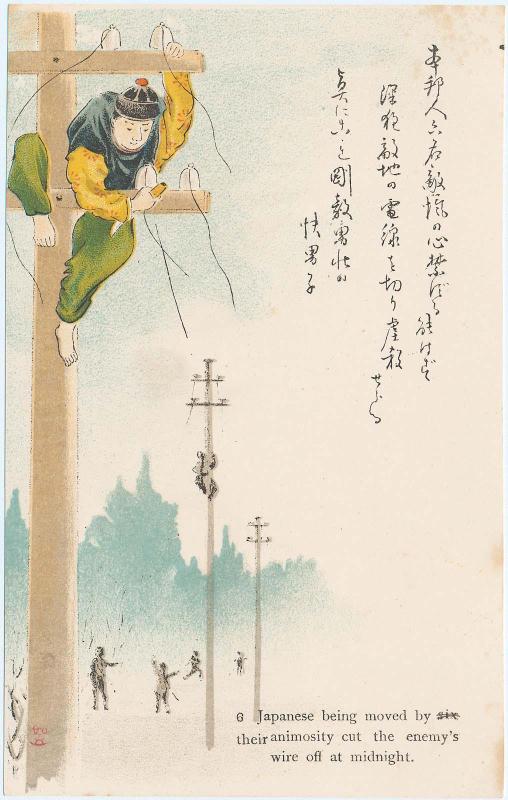 本邦人六名敵愾の心禁ずる能はず
深夜敵地の電線を切り虐殺
せらる
真にこれ剛毅勇壮の
快男子
6 Japanese being moved by six
their animosity cut the enemy's
wire off at midnight.